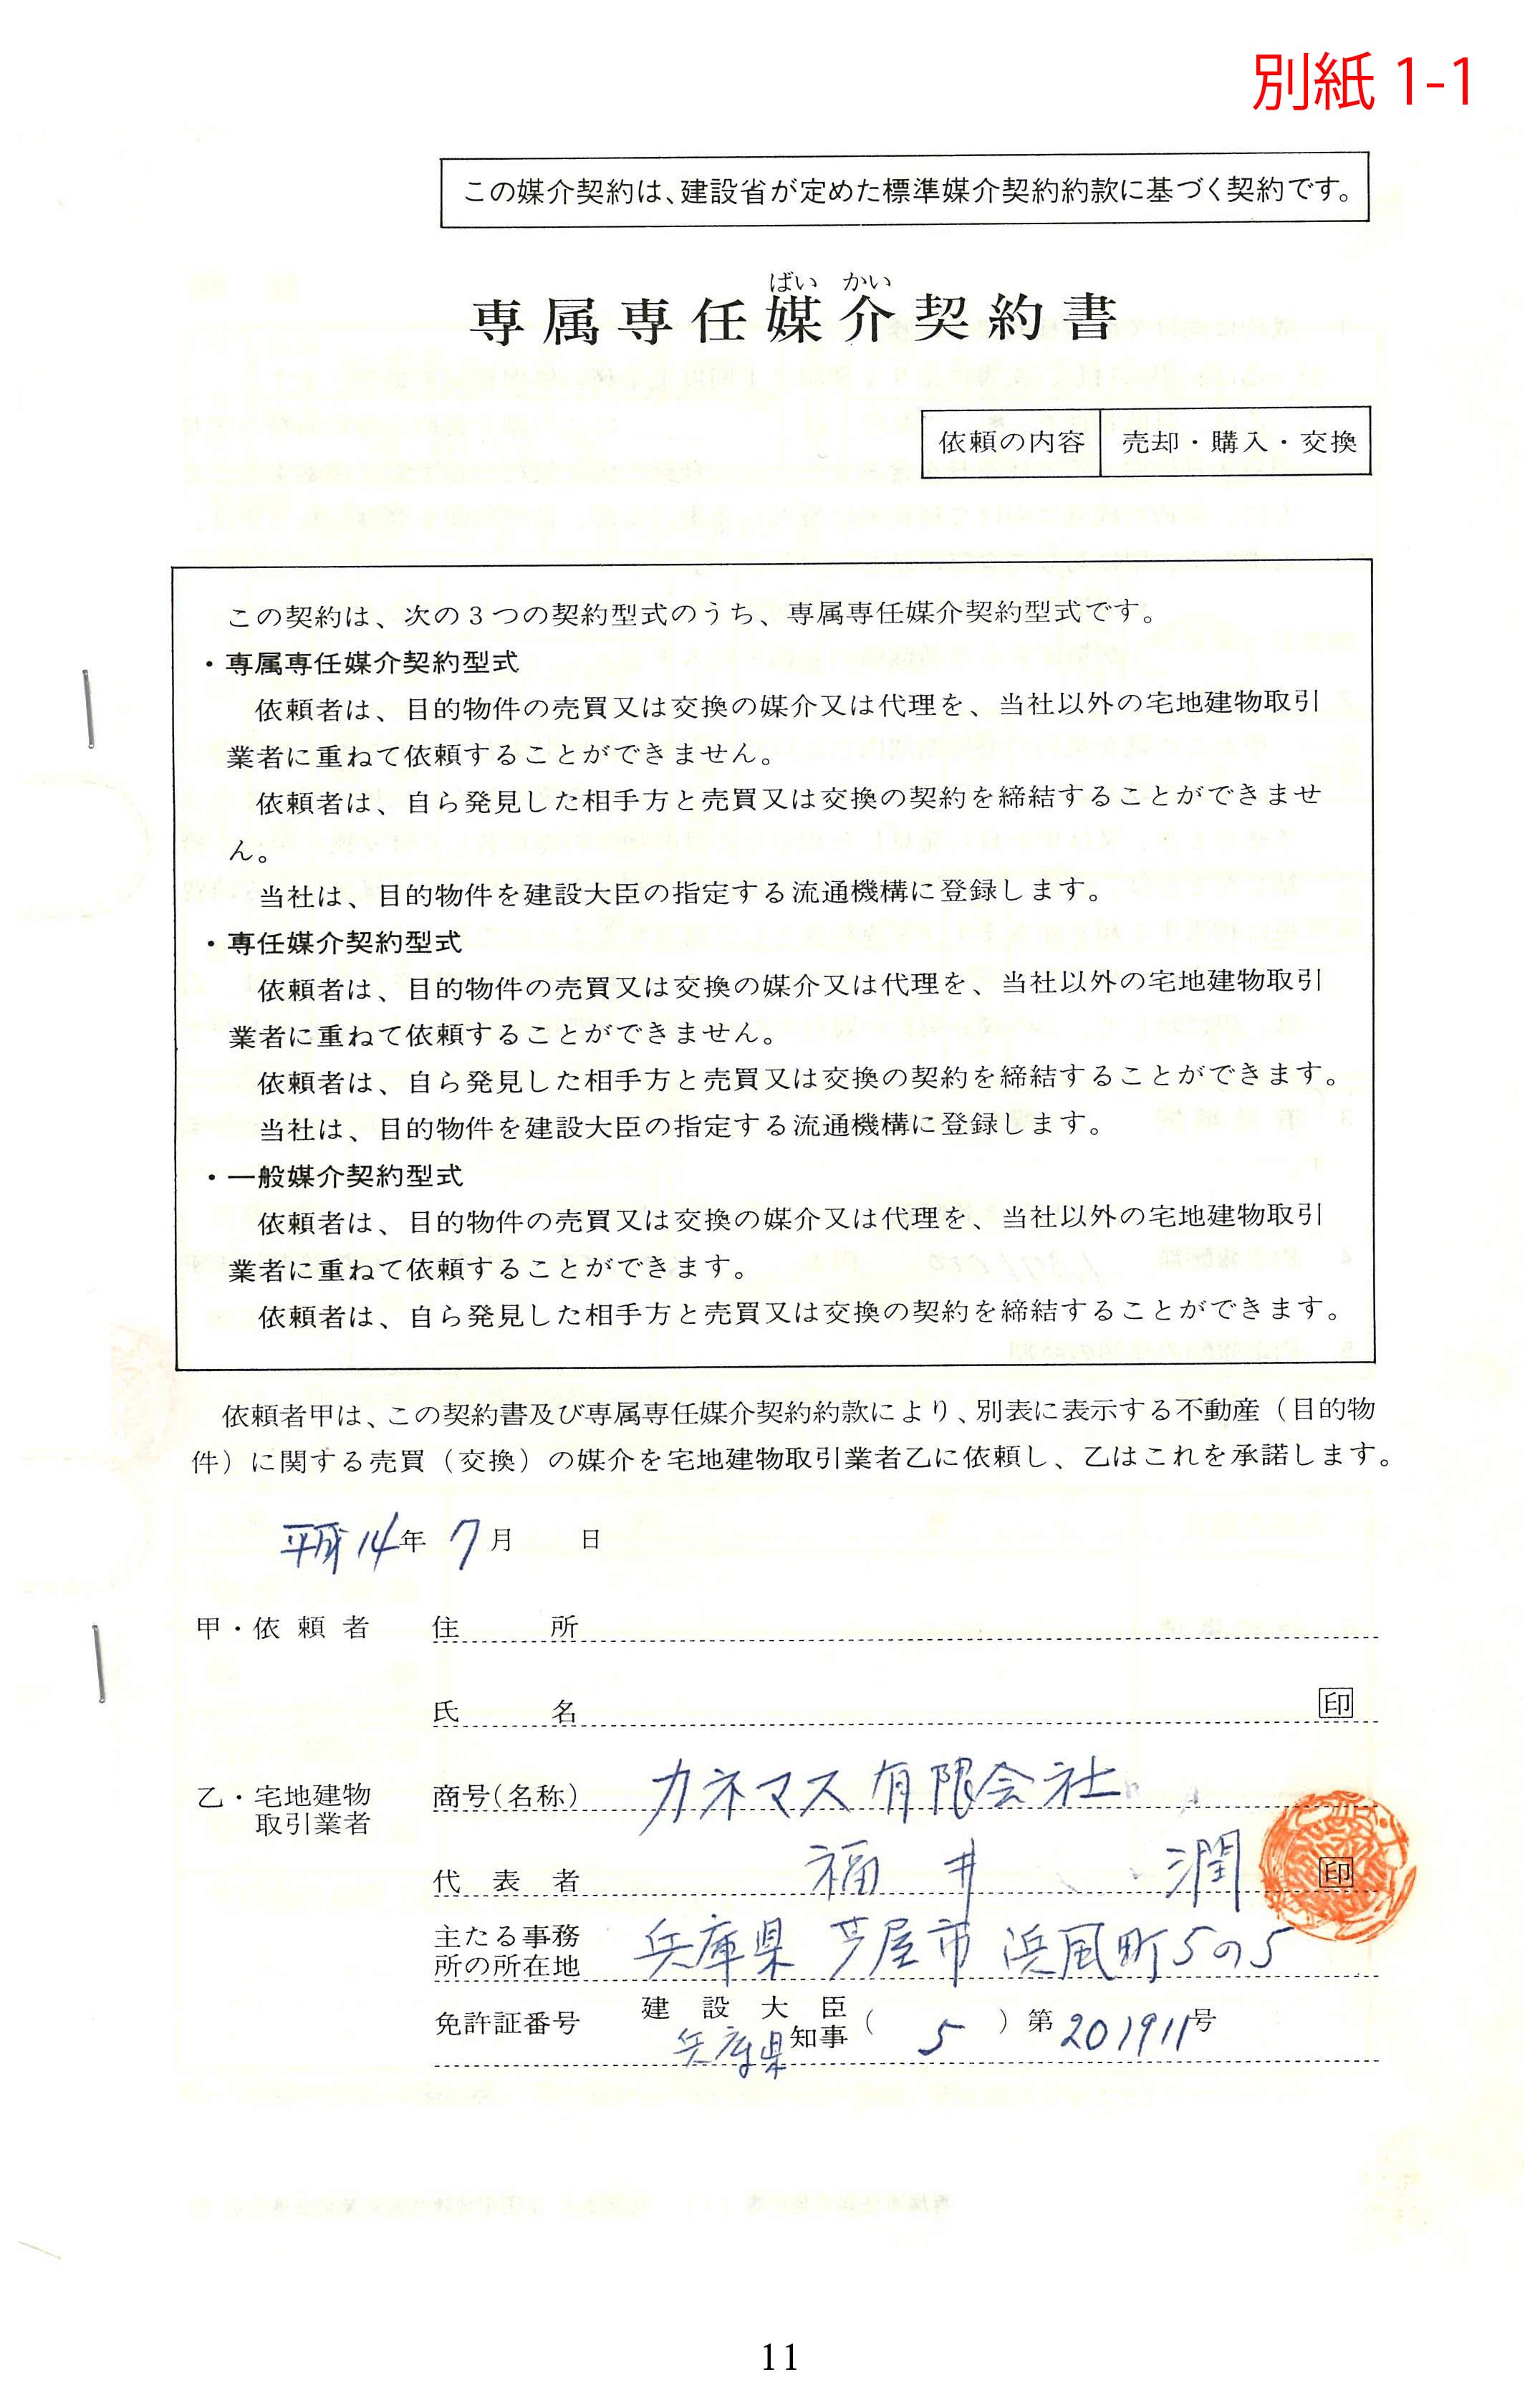 別紙 1-1
この媒介契約は、建設省が定めた標準媒介契約約款に基づく契約です。
ばい かい
専属専任媒介契約書
依頼の内容 売却・購入・交換
この契約は、次の3つの契約型式のうち、専属専任媒介契約型式です。
・専属専任媒介契約型式
依頼者は、目的物件の売買又は交換の媒介又は代理を、当社以外の宅地建物取引
業者に重ねて依頼することができません。
依頼者は、自ら発見した相手方と売買又は交換の契約を締結することができませ
ん。
当社は、目的物件を建設大臣の指定する流通機構に登録します。
・専任媒介契約型式
依頼者は、目的物件の売買又は交換の媒介又は代理を、当社以外の宅地建物取引
業者に重ねて依頼することができません。
依頼者は、自ら発見した相手方と売買又は交換の契約を締結することができます。
当社は、目的物件を建設大臣の指定する流通機構に登録します。
・一般媒介契約型式
依頼者は、目的物件の売買又は交換の媒介又は代理を、当社以外の宅地建物取引
業者に重ねて依頼することができます。
依頼者は、自ら発見した相手方と売買又は交換の契約を締結することができます。
依頼者甲は、この契約書及び専属専任媒介契約約款により、別表に表示する不動産（目的物
件）に関する売買（交換）の媒介を宅地建物取引業者乙に依頼し、乙はこれを承諾します。
平成14年 7月 日
甲・依頼者 住所
氏名 印
乙・宅地建物 商号(名称) カネマス有限会社
取引業者
代表者 福井 潤 印
主たる事務 兵庫県 芦屋市 浜風町5の5
所の所在地
免許証番号 建設大臣
兵庫県知事 （ 5 ）第201911号
11